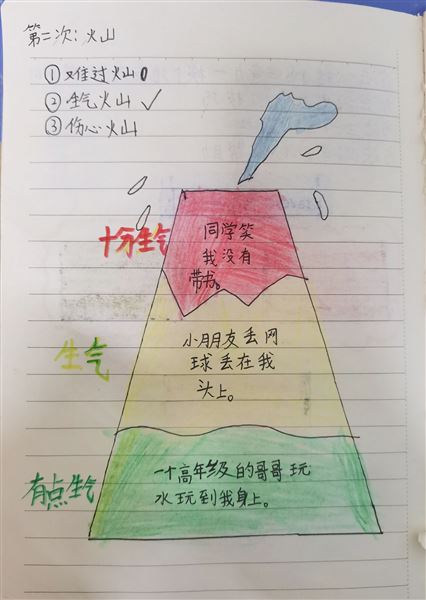 第二次：火山
①难过火山
②生气火山✓
③伤心火山
十分生气
同学笑
我没有
带书。
生气
小朋友丢网
球丢在我
头上。
有点生气
一个高年级的哥哥玩
水玩到我身上。